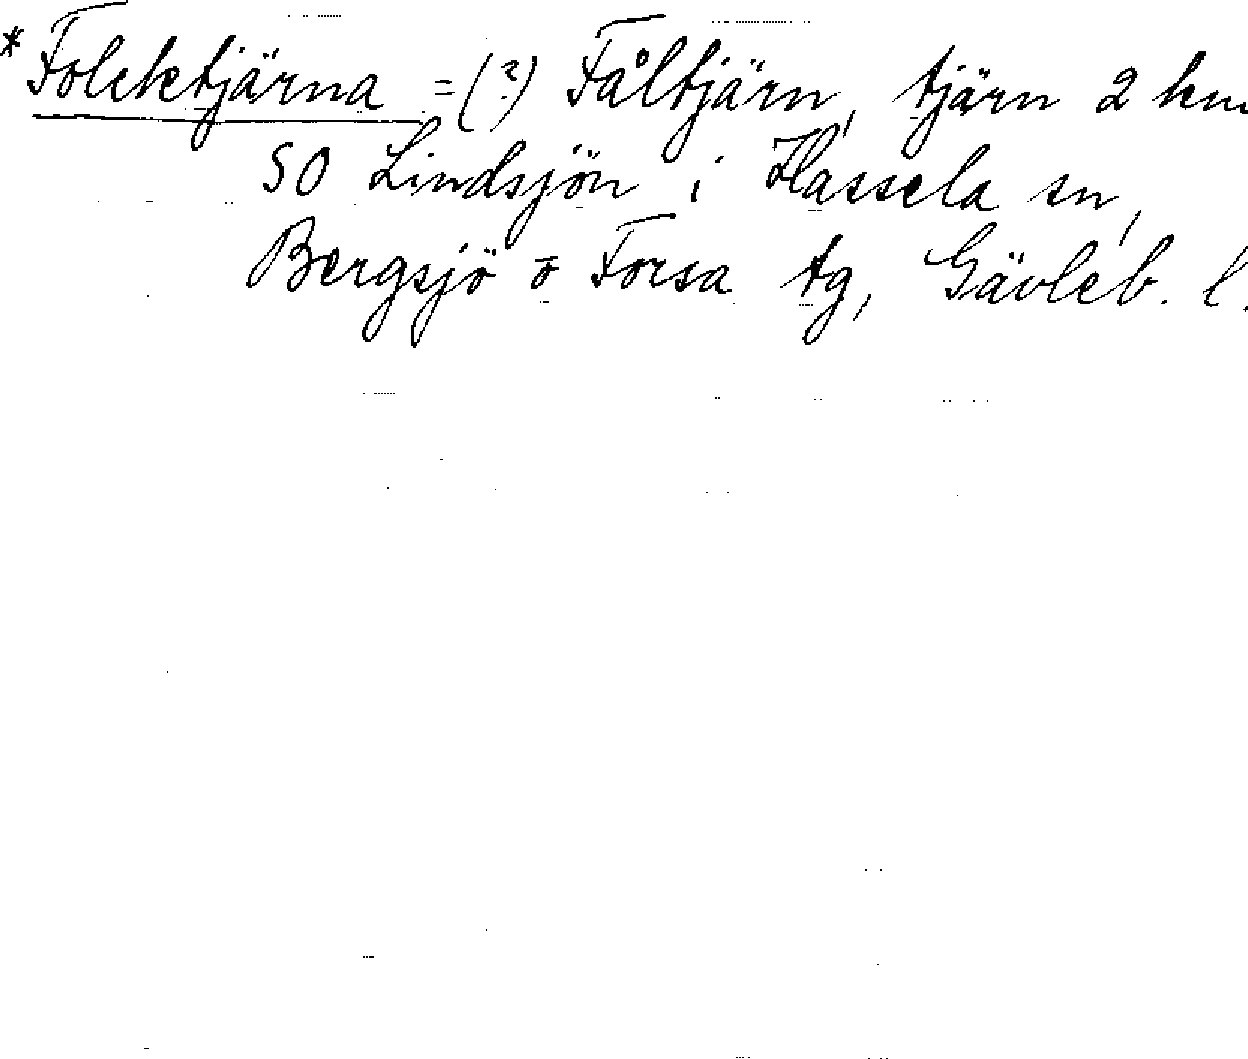 *Folcktjärna =(?) Fåltjärn, tjärn 2 km
SO Lindsjön i Hassela sn,
Bergsjö o Forsa tg, Gävleb. l.